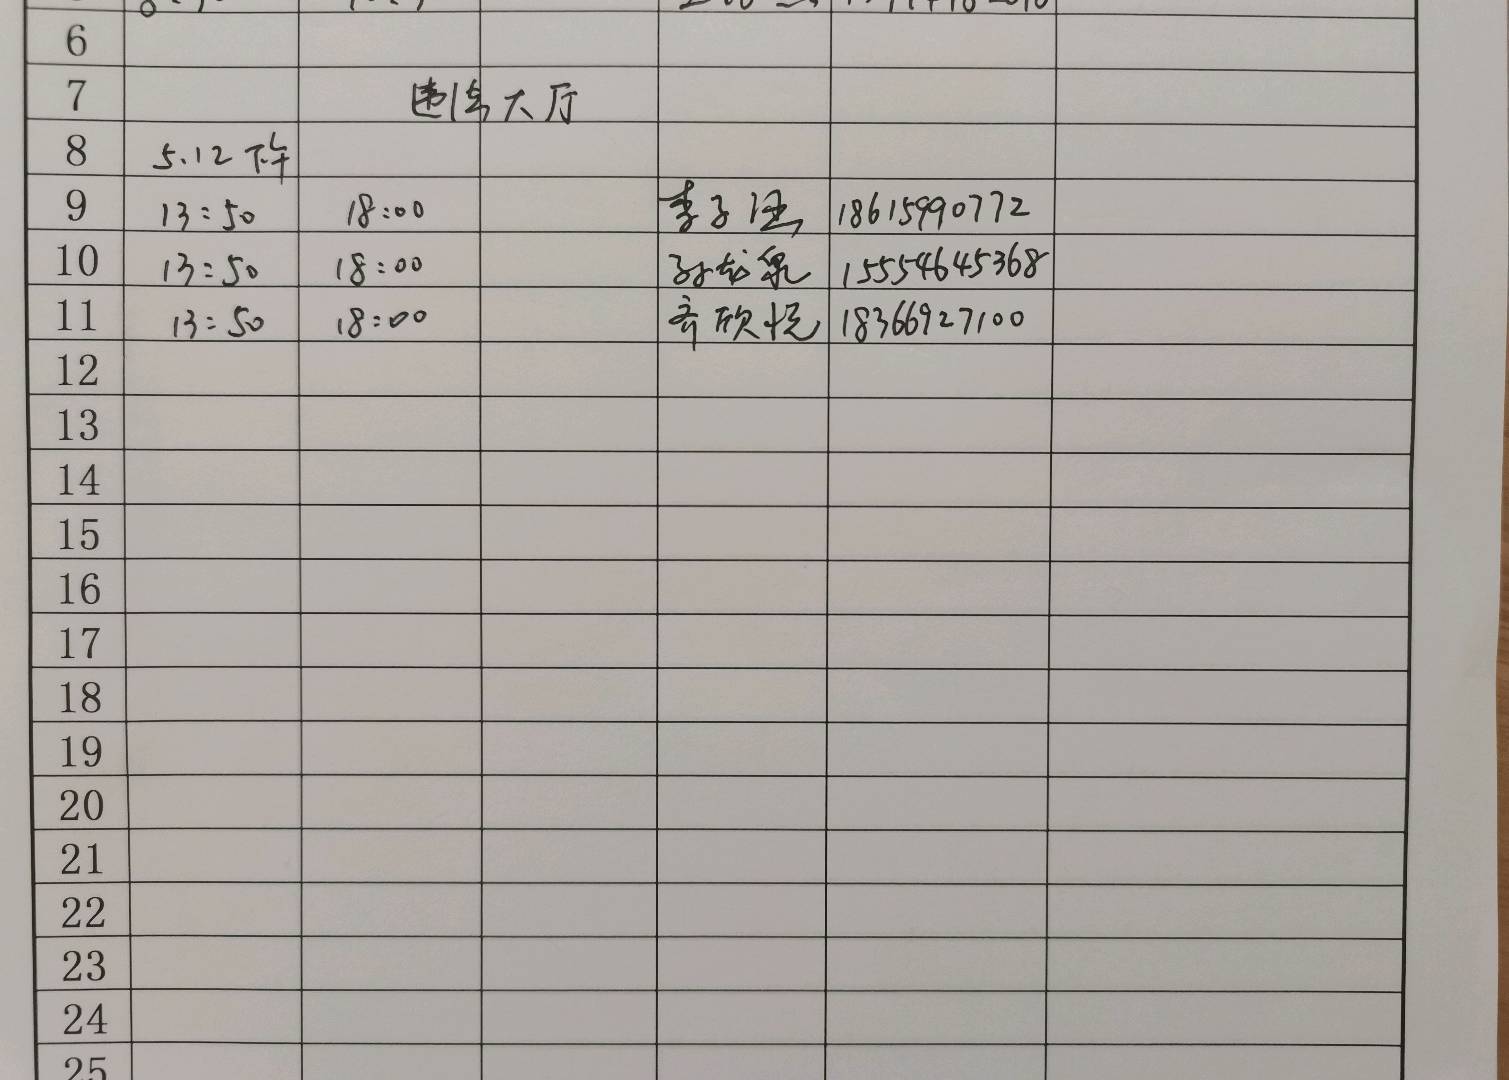 6
7 违法大厅
8 5.12 下午
9 13:50 18:00 李子 18615990772
10 13:50 18:00 孙龙泉 15554645368
11 13:50 18:00 齐欣悦 18366927100
12
13
14
15
16
17
18
19
20
21
22
23
24
25